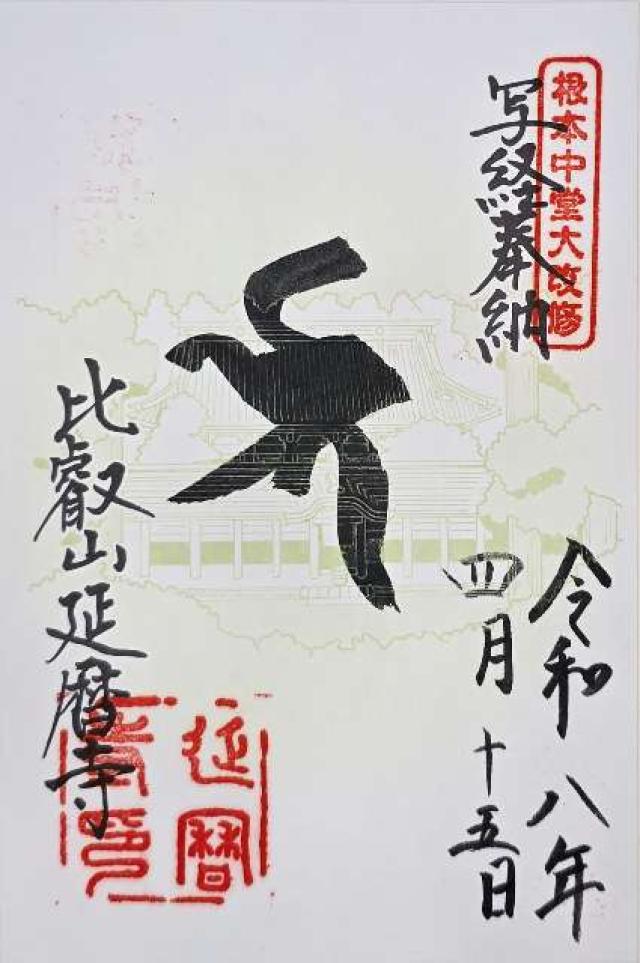 根本中堂大改修
写経奉納
令和八年
四月十五日
比叡山延暦寺
延暦
寺印